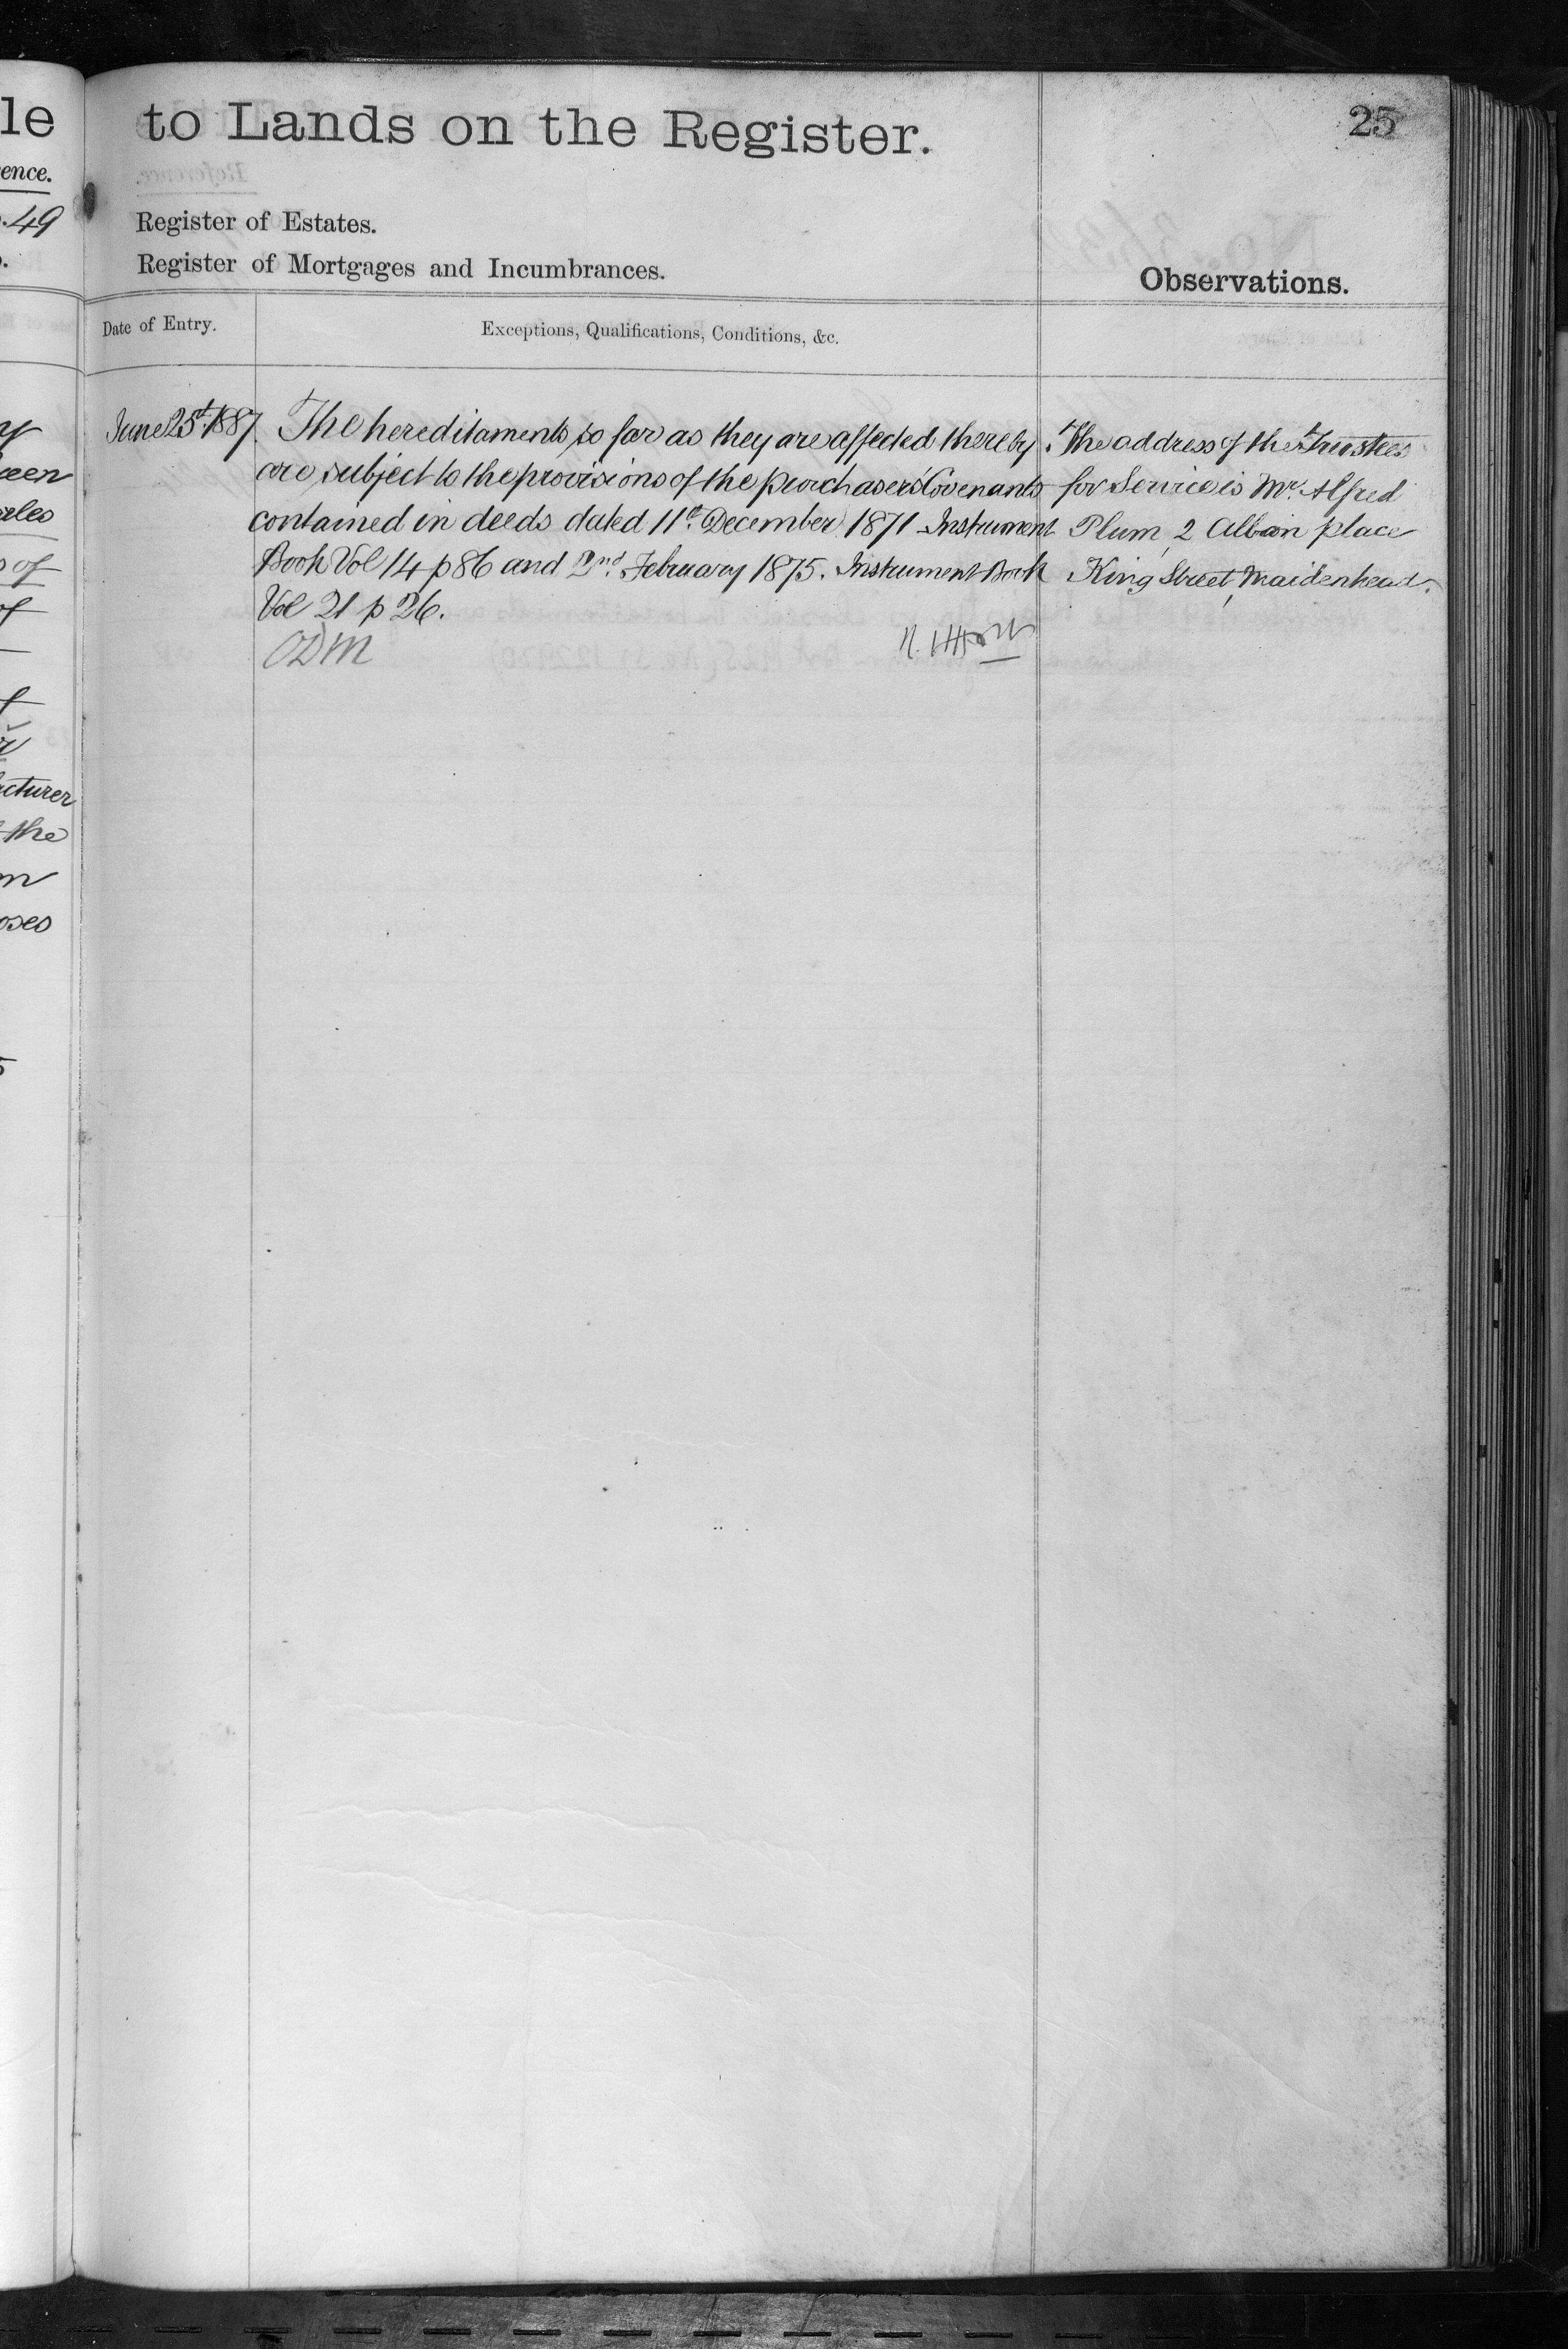 le
to Lands on the Register.
25
ence.
.49
Register of Estates.
Register of Mortgages and Incumbrances.
Observations.
Date of Entry.
Exceptions, Qualifications, Conditions, &c.
June 25th 1887
The hereditaments so far as they are affected thereby
are subject to the provisions of the purchasers Covenants
contained in deeds dated 11th December 1871 Instrument
Book Vol 14 p 86 and 2nd February 1875. Instrument Book
Vol 21 p 26.
ODM
The address of the Trustees
for Service is Mr. Alfred
Plum, 2 Albion place
King Street, Maidenhead.
een
rles
of
f
f
acturer
the
m
oses